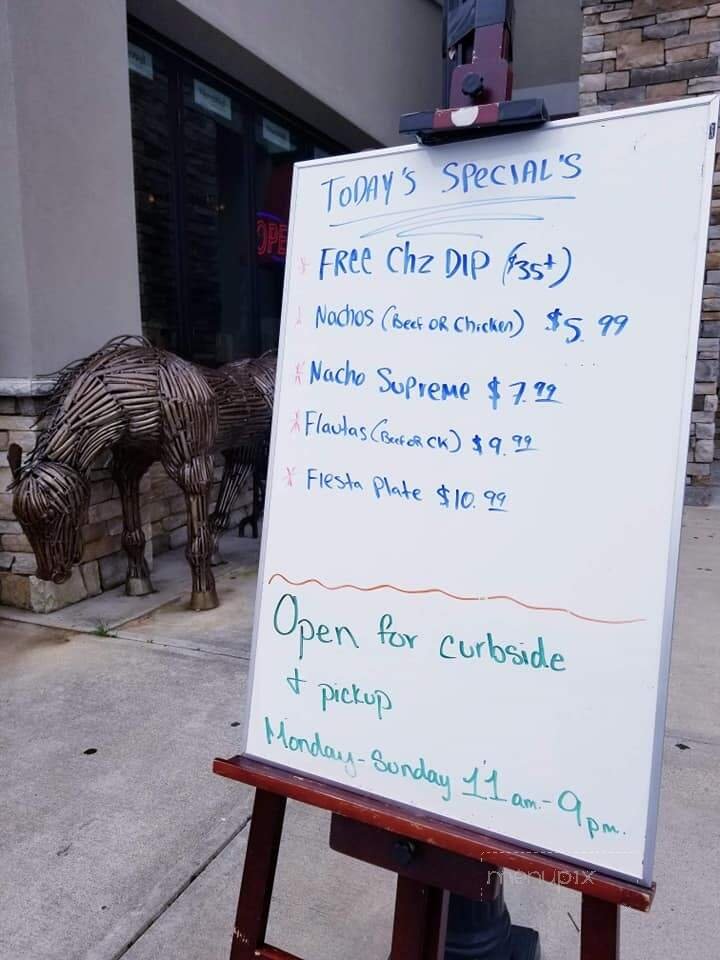 TODAY'S SPECIAL'S
FREE Chz DIP ($35+)
Nachos (Beef OR Chicken) $5.99
Nacho Supreme $7.99
Flautas (Beef OR CK) $9.99
Fiesta Plate $10.99
Open for curbside
+ pickup
Monday-Sunday 11am-9pm.
OPE
menupix